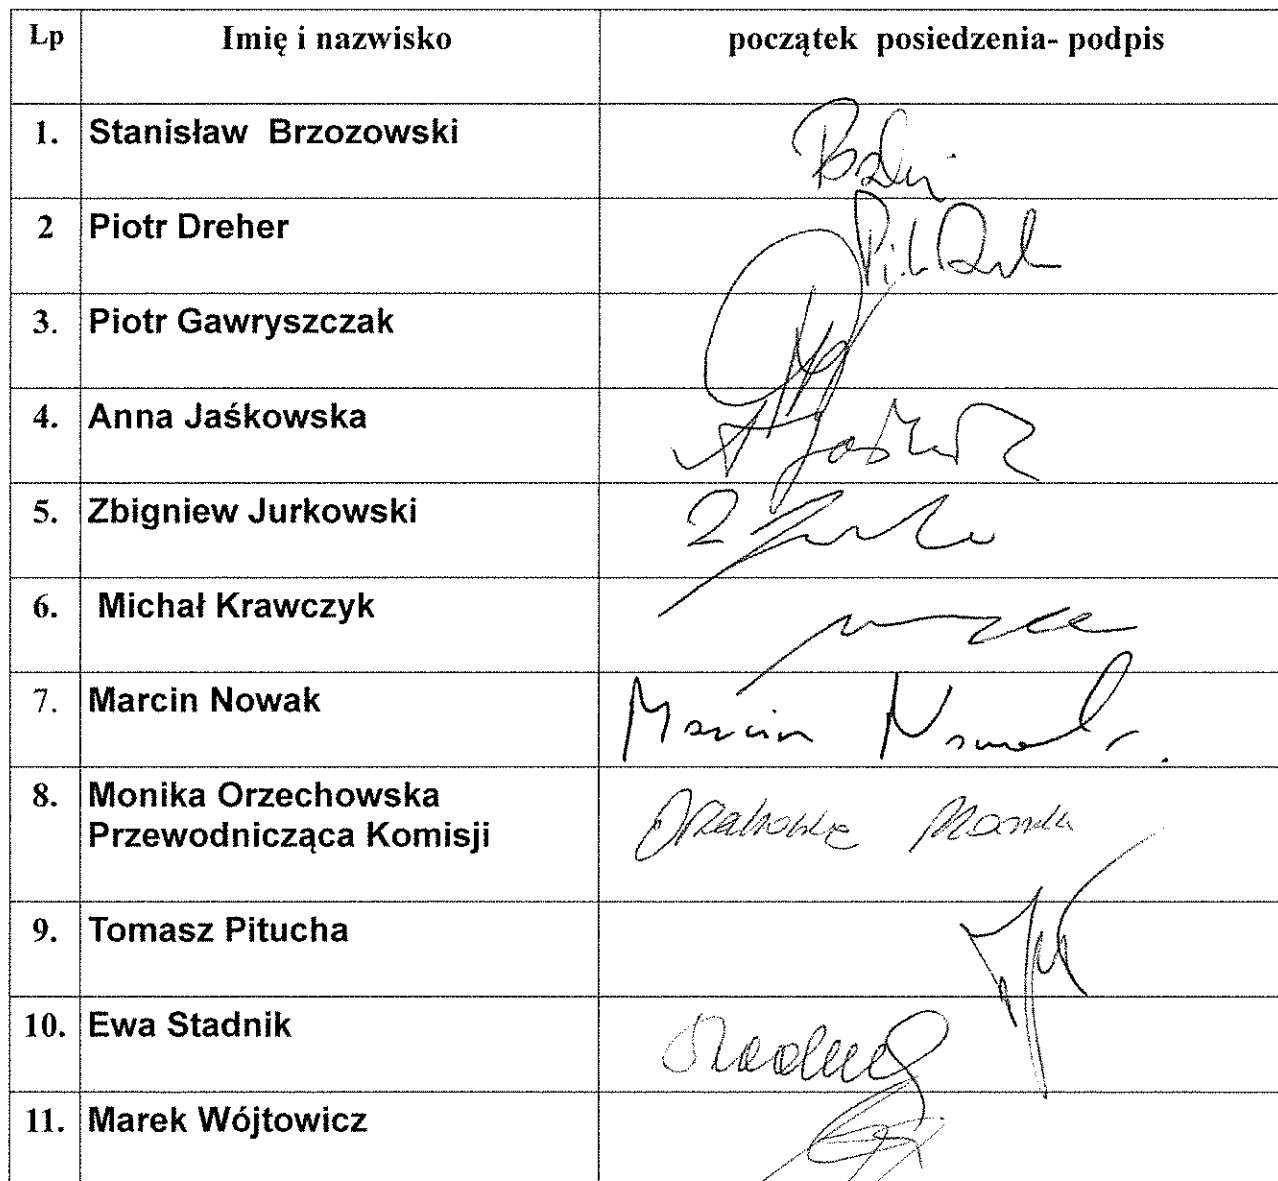 Lp Imię i nazwisko początek posiedzenia- podpis
1. Stanisław Brzozowski
2 Piotr Dreher
3. Piotr Gawryszczak
4. Anna Jaśkowska
5. Zbigniew Jurkowski
6. Michał Krawczyk
7. Marcin Nowak Marcin Nowak
8. Monika Orzechowska
Przewodnicząca Komisji
9. Tomasz Pitucha
10. Ewa Stadnik
11. Marek Wójtowicz